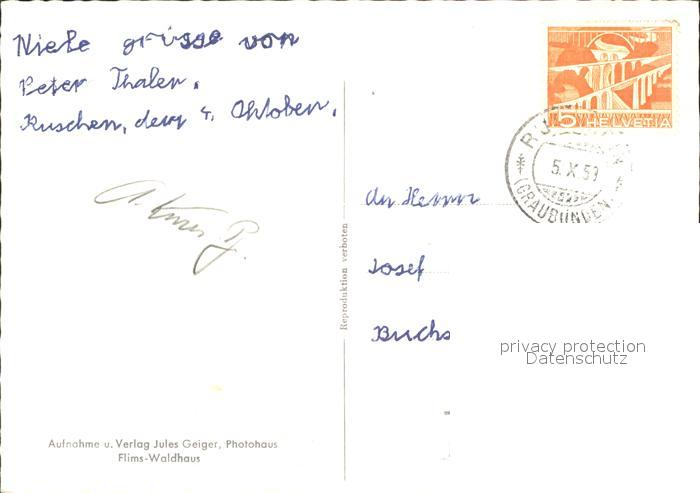 Niele grüsse von
Peter Thaler.
Ruschen, den 4. Oktober.
5 HELVETIA
5.X.59
(GRAUBÜNDEN)
An Herrn
Josef
Buchs
Reproduktion verboten
privacy protection
Datenschutz
Aufnahme u. Verlag Jules Geiger, Photohaus
Flims-Waldhaus